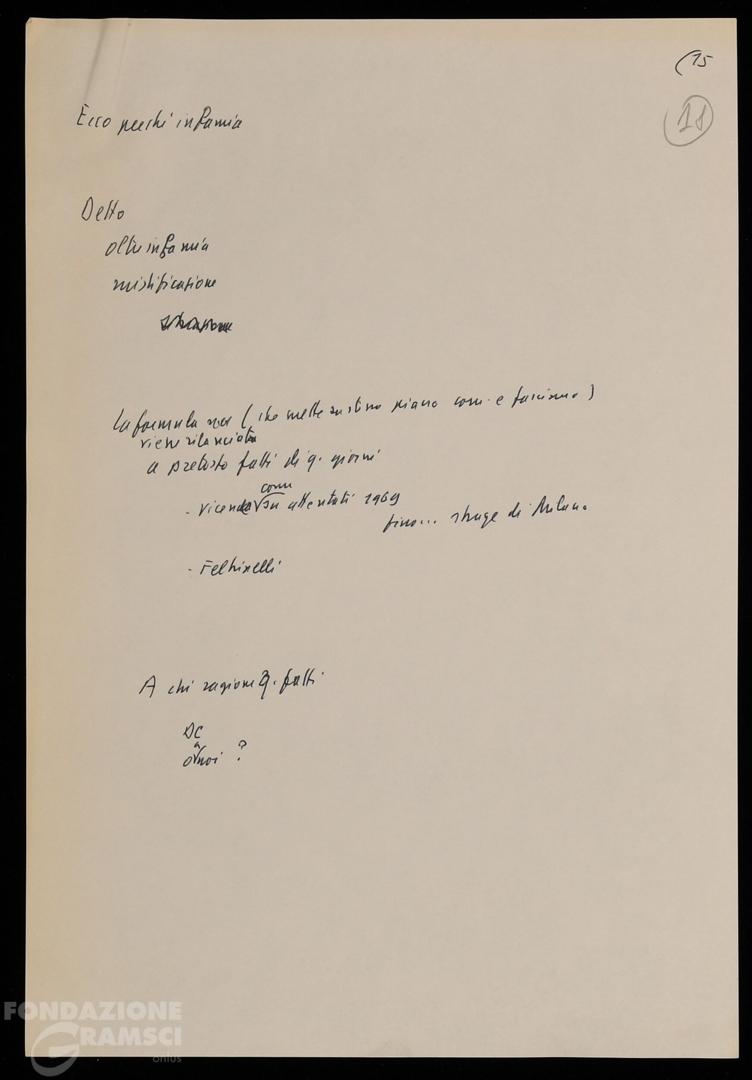 (15
18
Ecco perchè infamia
Detto
oltre infamia
mistificazione
La formula (che mette su stesso piano com. e fascismo)
viene rilanciata
a pretesto fatti di q. giorni
com
- vicenda su attentati 1969
fino... strage di Milano
- Feltrinelli
A chi ragione q. fatti
DC
a
o noi ?
FONDAZIONE
GRAMSCI
onlus